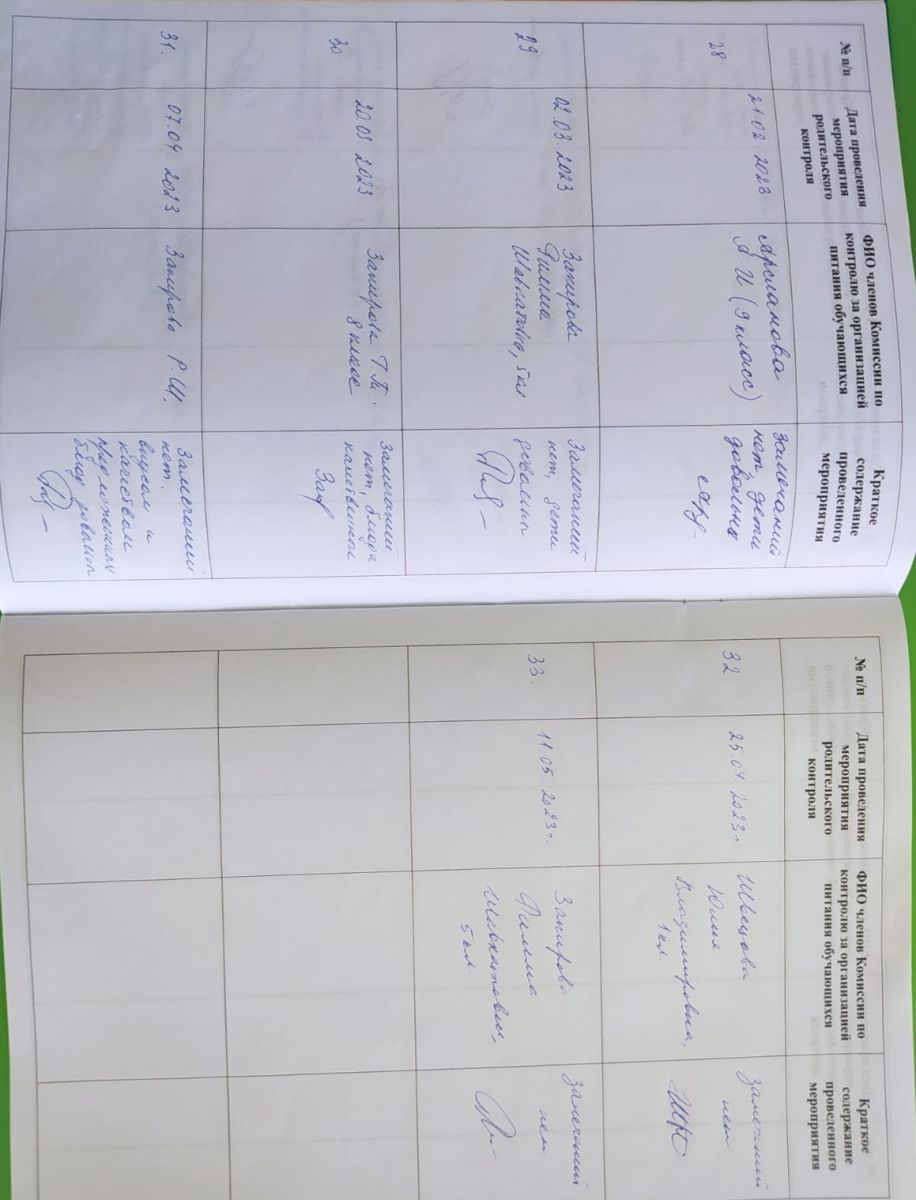 № п/п
Дата проведения
мероприятия
родительского
контроля
ФИО членов Комиссии по
контролю за организацией
питания обучающихся
Краткое
содержание
проведенного
мероприятия
28
21.02 2023
Арсланова
А И (9 класс)
Замечаний
нет дети
довольны
29
02.03.2023
Закирова
Римма
5 кл
Замечаний
нет, дети
довольны
30
20.03 2023
Закирова Г.Т.
8 класс
Замечаний
нет, блюда
31.
07.04. 2023
Закирова Р.Ш.
Замечаний
нет.
вкусом и
качеством
предложенных
блюд довольны
№ п/п
Дата проведения
мероприятия
родительского
контроля
ФИО членов Комиссии по
контролю за организацией
питания обучающихся
Краткое
содержание
проведенного
мероприятия
32
25.04. 2023г
Швецова
Юлия
Владимировна,
1 кл.
Замечаний
нет
33.
11.05. 2023г.
Закирова
Римма
5 кл.
Замечаний
нет